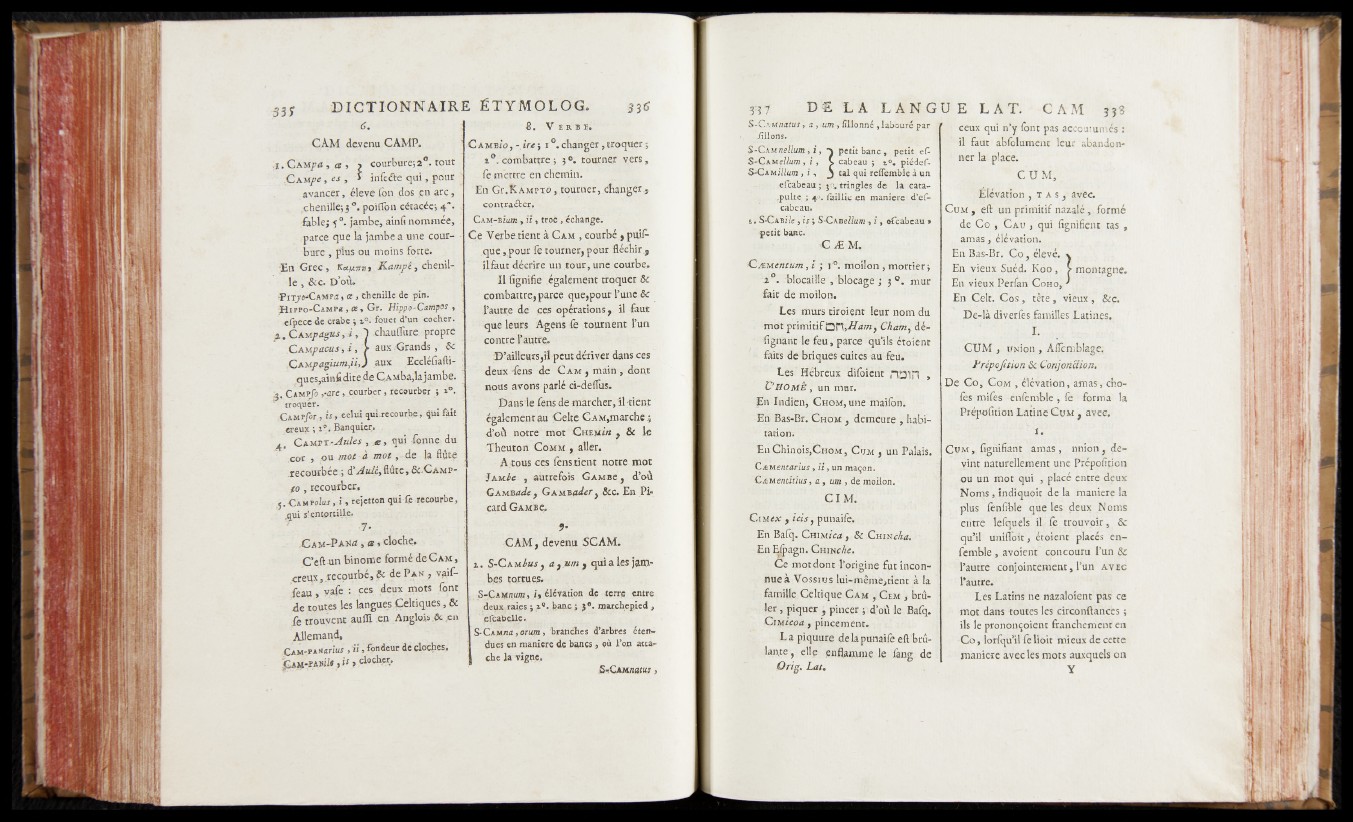 335 DICTIONNAIRE ÉTYMOLOG. 336
6.
CAM devenu CAMP.
1. CAMPa, æ, } courbure; 2°. tout
CAMPe, es, } inſecte qui, pour
avancer, éleve ſon dos en arc,
chenille; 3°. poiſſon cétacée; 4°.
fable; 5°. jambe, ainſi nommée,
parce que la jambe a une cour-
bure, plus ou moins forte.
En Grec, Καμπη, Kampé, chenil-
le, &c. D'où.
PITyo-CAMPa, æ, chenille de pin.
HIPPO-CAMPa, æ, Gr. Hippo-Campos,
eſpece de crabe; 2°. fouet d'un cocher.
2. CAMpagus, i, } chauſſure propre
CAMpacus, i, } aux Grands, &
CAMpagium, ii, } aux Eccléſiaſti-
ques, ainſi dite de CAMba, la jambe.
3. CAMPſo, -are, courber, recourber; 2°.
troquer.
CAMPſor, is, celui qui recourbe, qui fait
creux; 2°. Banquier.
4. CAMPT-Aules, æ, qui ſonne du
cor, ou mot à mot, de la flûte
recourbée; d'Aulé, flûte, & CAMP-
to, recourber.
5. CAMPolus, i, rejetton qui ſe recourbe,
qui s'entortille.
7.
CAM-PANa, æ, cloche.
C'eſt un binome formé de CAM,
creux, recourbé, & de PAN, vaiſ-
ſeau, vaſe : ces deux mots ſont
de toutes les langues Celtiques, &
ſe trouvent auſſi en Anglois & en
Allemand.
CAM-PANarius, ii, fondeur de cloches.
CAM-PANile, is, clocher.
8. VERBE.
CAMBio, - ire; 1°. changer, troquer;
2°. combattre; 3°. tourner vers,
ſe mettre en chemin.
En Gr. KAMPTO, tourner, changer,
contracter.
CAM-Bium, ii, troc, échange.
Ce Verbe tient à CAM, courbé, puiſ-
que, pour ſe tourner, pour fléchir,
il faut décrire un tour, une courbe.
Il ſignifie également troquer &
combattre, parce que, pour l'une &
l'autre de ces opérations, il faut
que leurs Agens ſe tournent l'un
contre l'autre.
D'ailleurs, il peut dériver dans ces
deux ſens de CAM, main, dont
nous avons parlé ci-deſſus.
Dans le ſens de marcher, il tient
également au Celte CAM, marche;
d'où notre mot CHEMin, & le
Theuton COMM, aller.
A tous ces ſens tient notre mot
JAMBe, autrefois GAMBE, d'où
GAMBade, GAMBader, &c. En Pi-
card GAMBE.
9.
CAM, devenu SCAM.
1. S-CAMbus, a, um, qui a les jam-
bes tortues.
S-CAMnum, i, élévation de terre entre
deux raies; 2°. banc; 3°. marchepied,
eſcabelle.
S-CAMna, orum, branches d'arbres éten-
dues en maniere de bancs, où l'on atta-
che la vigne.
S-CAMnatus,
337 DE LA LANGUE LAT. CAM 338
S-CAMnatus, a, um, ſillonné, labouré par
ſillons.
S-CAMnellum, i, } petit banc, petit eſ-
S-CAMellum, i, } cabeau; 2°. piédeſ-
S-CAMillum, i, } tal qui reſſemble à un
eſcabeau; 3°. tringles de la cata-
pulte; 4°. ſaillie en maniere d'eſ-
cabeau.
2. S-CABile, is; S-CABellum, i, eſcabeau,
petit banc.
CÆM.
CÆMentum, i; 1°. moilon, mortier;
2°. blocaille, blocage; 3°. mur
fait de moilon.
Les murs tiroient leur nom du
mot primitif חם, Ham, Cham, dé-
ſignant le feu, parce qu'ils étoient
faits de briques cuites au feu.
Les Hébreux diſoient חומה,
C'HOMÉ, un mur.
En Indien, CHOM, une maiſon.
En Bas-Br. CHOM, demeure, habi-
tation.
En Chinois, CHOM, CUM, un Palais.
CÆMentarius, ii, un maçon.
CÆMentitius, a, um, de moilon.
CIM.
CIMex, icis, punaiſe.
En Baſq. CHIMica, & CHINcha.
En Eſpagn. CHINche.
Ce mot dont l'origine fut incon-
nue à VOSSIUS lui-même, tient à la
famille Celtique CAM, CEM, brû-
ler, piquer, pincer; d'où le Baſq.
CIMicoa, pincement.
La piquure de la punaiſe eſt brû-
lante, elle enflamme le ſang de
Orig. Lat.
ceux qui n'y ſont pas accoutumés :
il faut abſolument leur abandon-
ner la place.
CUM,
Élévation, TAS, avec.
CUM, eſt un primitif nazalé, formé
de CO, CAU, qui ſignifient tas,
amas, élévation.
En Bas-Br. CO, élevé. }
En vieux Suéd. KOO, } montagne.
En vieux Perſan COHO, }
En Celt. COS, tête, vieux, &c.
De-là diverſes familles Latines.
I.
CUM, UNion, Aſſemblage.
Prépoſition & Conjonction.
De CO, COM, élévation, amas, cho-
ſes miſes enſemble, ſe forma la
Prépoſition Latine CUM, avec.
1.
CUM, ſignifiant amas, union, de-
vint naturellement une Prépoſition
ou un mot qui, placé entre deux
Noms, indiquoit de la maniere la
plus ſenſible que les deux Noms
entre leſquels il ſe trouvoit, &
qu'il uniſſoit, étoient placés en-
ſemble, avoient concouru l'un &
l'autre conjointement, l'un AVEC
l'autre.
Les Latins ne nazaloient pas ce
mot dans toutes les circonſtances;
ils le prononçoient franchement en
CO, lorſqu'il ſe lioit mieux de cette
maniere avec les mots auxquels on
Y